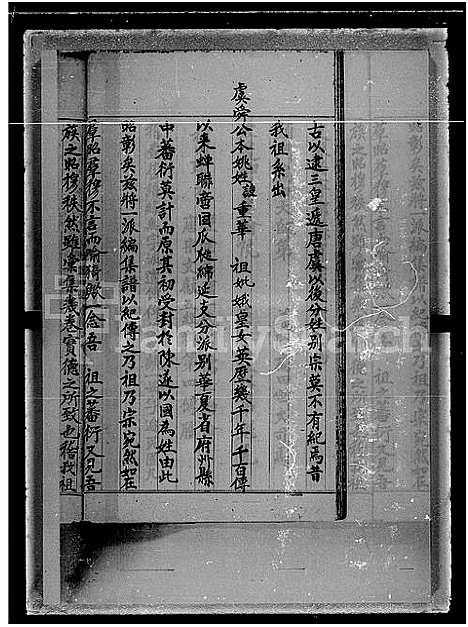 古以逮三皇遞唐虞以後分姓別宗莫不有紀焉昔
我祖系出
虞舜公本姚姓諱重華 祖妣娥皇女英歷幾千年千百傳
以來蟬聯帝國瓜瓞綿延支分派別華夏省府州縣
中蕃衍莫計而原其初受封於陳遂以國為姓由此
昭彰矣茲將一派編集譜以紀傳之乃祖乃宗宛然如在
昭羣穆不言而喻猗歟一念吾 祖之蕃衍又見吾
族之昭穆秩然雖彙集卷實德之所致也恪我祖
FamilySearch